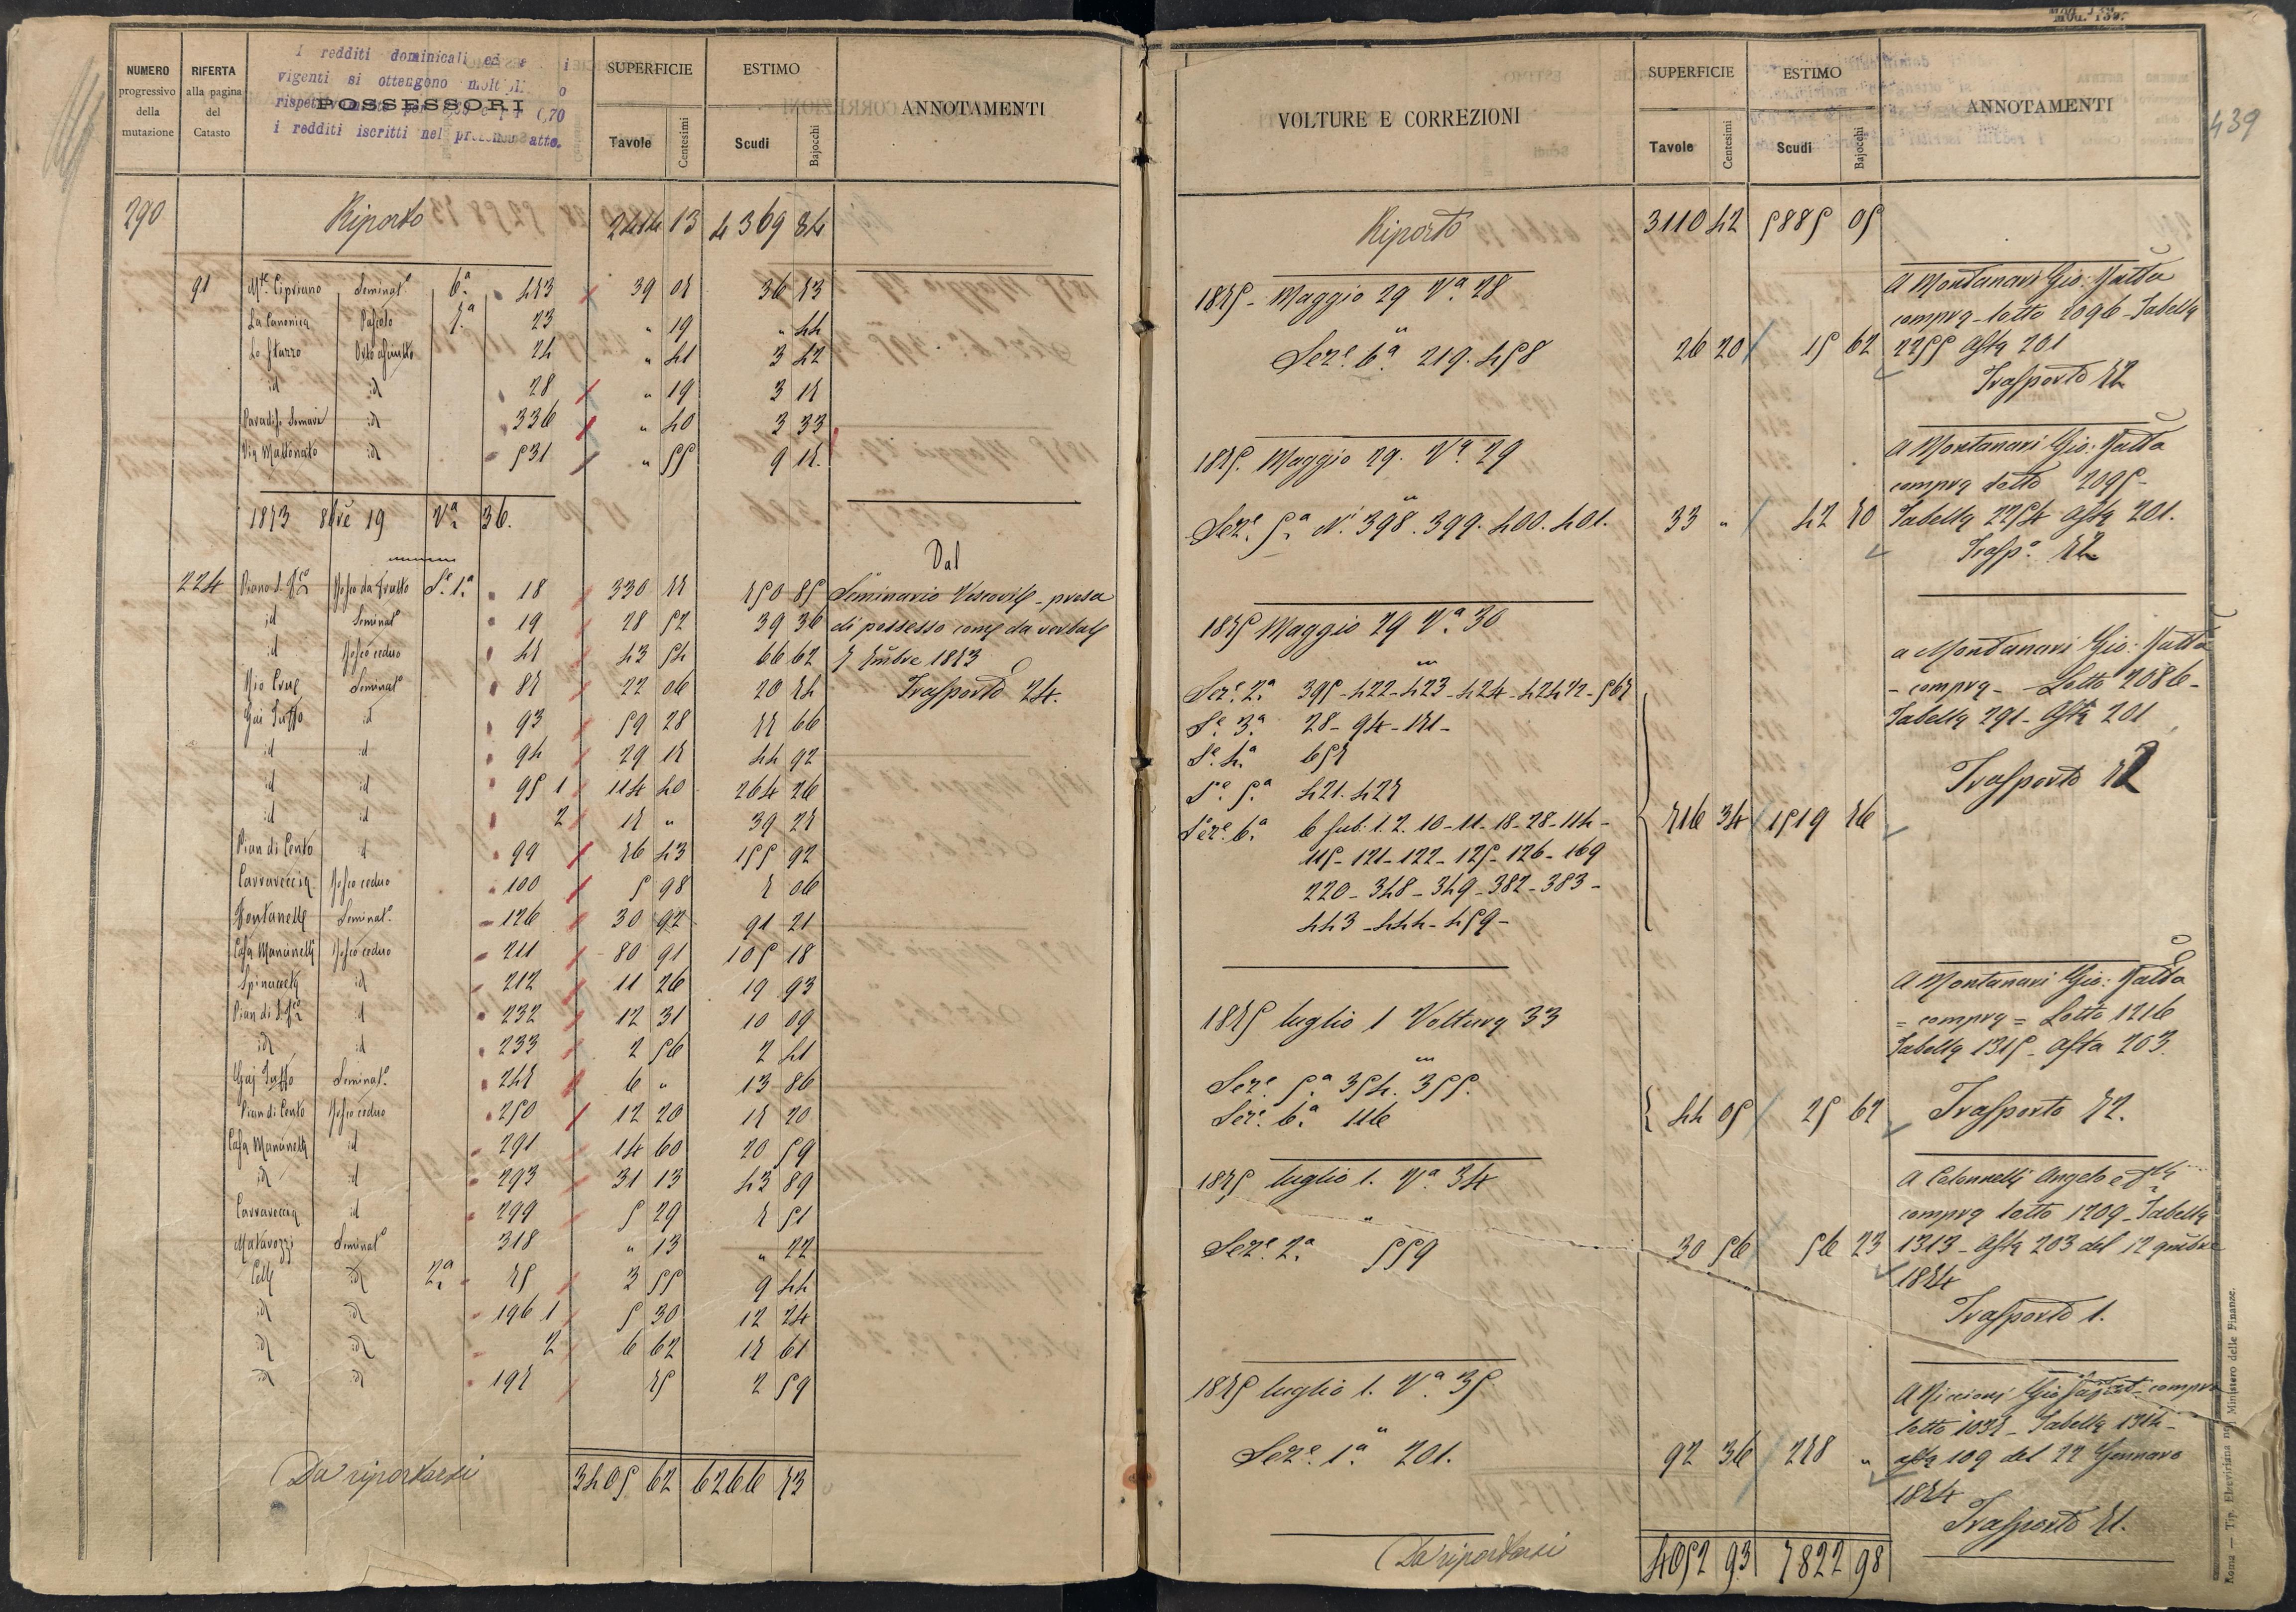 NUMERO progressivo della mutazione
RIFERTA alla pagina del Catasto
I redditi dominicali ed
vigenti si ottengono
POSSESSORI
i redditi iscritti nel atto.
SUPERFICIE
Tavole Centesimi
ESTIMO
Scudi Bajocchi
ANNOTAMENTI
290 Riporto 2414 13 4369 84
91 Mte. Cipriano Seminat.o 6.a 473 39 07 36 73
La Canonica Pascolo 7.a 23 " 19 " 44
Lo Stazzo Orto asciutto 24 " 41 3 42
id id 28 " 19 3 17
Paradiso id 336 " 40 3 33
Via Mattonato id 531 " 55 9 17
1873 8bre 19 Va. 36.
Dal
224 Piano S. Bosco da frutto S.e 1.a 18 330 77 750 85 Seminario Vescovile - presa
id Seminat.o 19 28 52 39 36 di possesso come da verbale
id Bosco ceduo 47 43 54 66 62 7 1873
Rio Seminat.o 87 22 06 20 74 Trasporto 24.
Gai Tuffo id 93 59 28 77 66
id id 94 29 17 44 92
id id 95 1 114 40 264 26
id id 2 17 " 39 27
Pian di Cento id 99 76 43 155 92
Carraveccia Bosco ceduo 100 5 98 7 06
Fontanelle Seminat.o 126 30 92 91 21
Casa Mancinelli Bosco ceduo 211 80 91 105 18
id 212 11 26 19 93
Pian di id 232 12 31 10 09
id id 233 2 56 2 41
Gaj Tuffo Seminat.o 247 6 " 13 86
Pian di Cento Bosco ceduo 250 12 20 17 20
Casa Mancinelli id 291 14 60 20 59
id id 293 31 13 43 89
Carraveccia id 299 5 29 7 51
Matavozzi Seminat.o 318 " 13 " 22
Celle id 2.a 75 3 55 9 44
id id 196 1 5 30 12 24
id id 2 6 62 17 61
id id 197 75 2 59
Da riportarsi 3405 62 6266 73
Mod. 139.
439
VOLTURE E CORREZIONI
SUPERFICIE
Tavole Centesimi
ESTIMO
Scudi Bajocchi
ANNOTAMENTI
Riporto 3110 42 5885 05
A Montanari Gio: Batta
1875 - Maggio 29 Va. 28
compra - lotto 2096 - Tabella
Seze. 6.a 219. 458 26 20 15 62 2255 Asta 201
Trasporto 72
A Montanari Gio: Batta
1875. Maggio 29. Va. 29
compra lotto 2095 -
Seze. 5.a N.i 398. 399. 400. 401. 33 " 42 70 Tabella 2254 Asta 201.
Trasp.o 72
1875 Maggio 29 Va. 30
a Montanari Gio: Batta
Seze. 2.a 395 - 422 - 423 - 424 - 424 1/2 - 567
- compra - Lotto 2086 -
S.e 3.a 28 - 94 - 171 -
Tabella 291 - Asta 201
S.e 4.a 657
S.e 5.a 421. 427
Trasporto 72
Seze. 6.a 6 sub. 1. 2. 10 - 11 - 18 - 28 - 114 - 716 34 1519 76
115 - 121 - 122 - 125 - 126 - 169
220 - 348 - 349 - 382 - 383 -
443 - 444 - 459 -
A Montanari Gio: Batta
1875 luglio 1 Voltura 33
= compra = Lotto 1216
Tabella 1315 - Asta 203.
Seze. 5.a 354. 355.
Seze. 6.a 116 44 05 25 62 Trasporto 72.
1875 luglio 1. Va. 34
A Colonnelli Angelo e
compra lotto 1209 - Tabella
Seze. 2.a 559 30 56 56 23 1313 - Asta 203 del 12
1874
Trasporto 1.
1875 luglio 1. Va. 35
A Riccioni Gio compra
lotto 1037 - Tabella 1314 -
Seze. 1.a 201. 92 36 278 " asta 109 del 22 Gennaro
1874
Trasporto 71.
Da riportarsi 4052 93 7822 98
Roma — Tip. Elzeviriana nel Ministero delle Finanze.